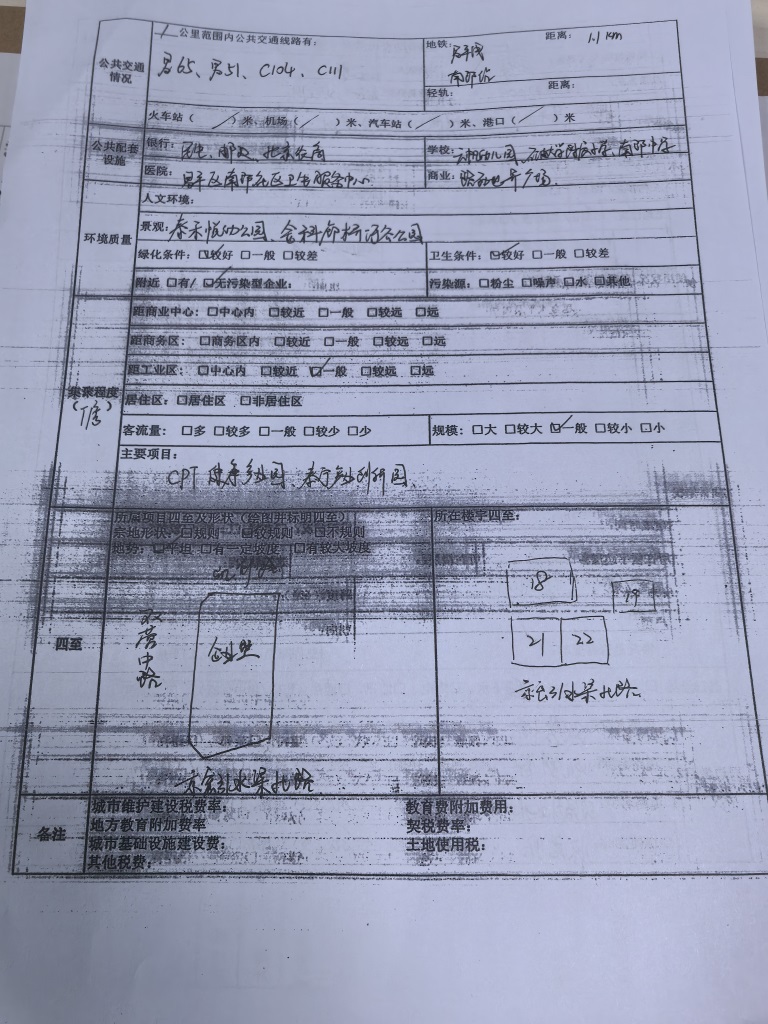 1公里范围内公共交通线路有:
地铁: 昌平线 距离: 1.1km
南邵站
公共交通情况
昌65、昌51、C104、C111
轻轨: 距离:
火车站( )米、机场( )米、汽车站( )米、港口( )米
公共配套设施
银行: 民生、邮政、北京农商
学校: 幼儿园、石油大学附属小学、南邵中学
医院: 昌平区南邵社区卫生服务中心
商业: 广场
人文环境:
环境质量
景观: 泰禾悦幼公园、金科廊桥河谷公园
绿化条件: ☑较好 □一般 □较差
卫生条件: ☑较好 □一般 □较差
附近 □有/ ☑无污染型企业:
污染源: □粉尘 □噪声 □水 □其他
距商业中心: □中心内 □较近 □一般 □较远 □远
距商务区: □商务区内 □较近 □一般 □较远 □远
距工业区: □中心内 □较近 ☑一般 □较远 □远
集聚程度
居住区: □居住区 □非居住区
客流量: □多 □较多 □一般 □较少 □少
规模: □大 □较大 ☑一般 □较小 □小
主要项目:
CPT 健康产业园、泰宁科创园
所属项目四至及形状(绘图并标明四至)
所在楼宇四至:
宗地形状: □规则 □较规则 □不规则
地势: □平坦 □有一定坡度 □有较大坡度
18
19
双营中路
企业墅
21 22
四至
京密引水渠北路
京密引水渠北路
备注
城市维护建设税费率:
教育费附加费用:
地方教育附加费率
契税费率:
城市基础设施建设费:
土地使用税:
其他税费: